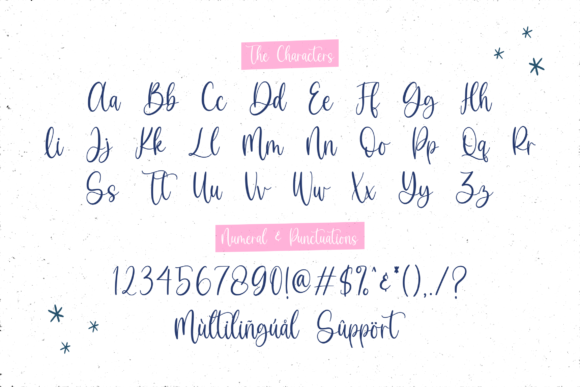 The Characters
Aa Bb Cc Dd Ee Ff Gg Hh
Ii Jj Kk Ll Mm Nn Oo Pp Qq Rr
Ss Tt Uu Vv Ww Xx Yy Zz
Numeral & Punctuations
1234567890!@#$%^&*(),./?
Mùltiliñgúál Sûppört